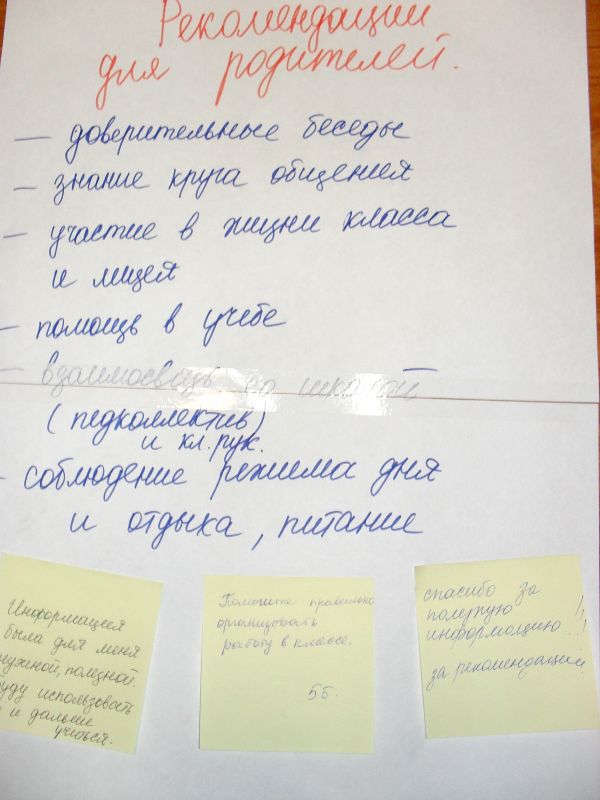 Рекомендации
для родителей.
— доверительные беседы
— знание круга общения
— участие в жизни класса
и лицея
— помощь в учебе
— взаимосвязь со школой
(педколлектив)
и кл. рук.
- соблюдение режима дня
и отдыха, питание
Информация
была для меня
нужной, полезной.
Буду использовать
и дальше
учиться.
Помогите правильно
организовать
работу в классе.
5б.
спасибо за
полезную
информацию!!
за рекомендации